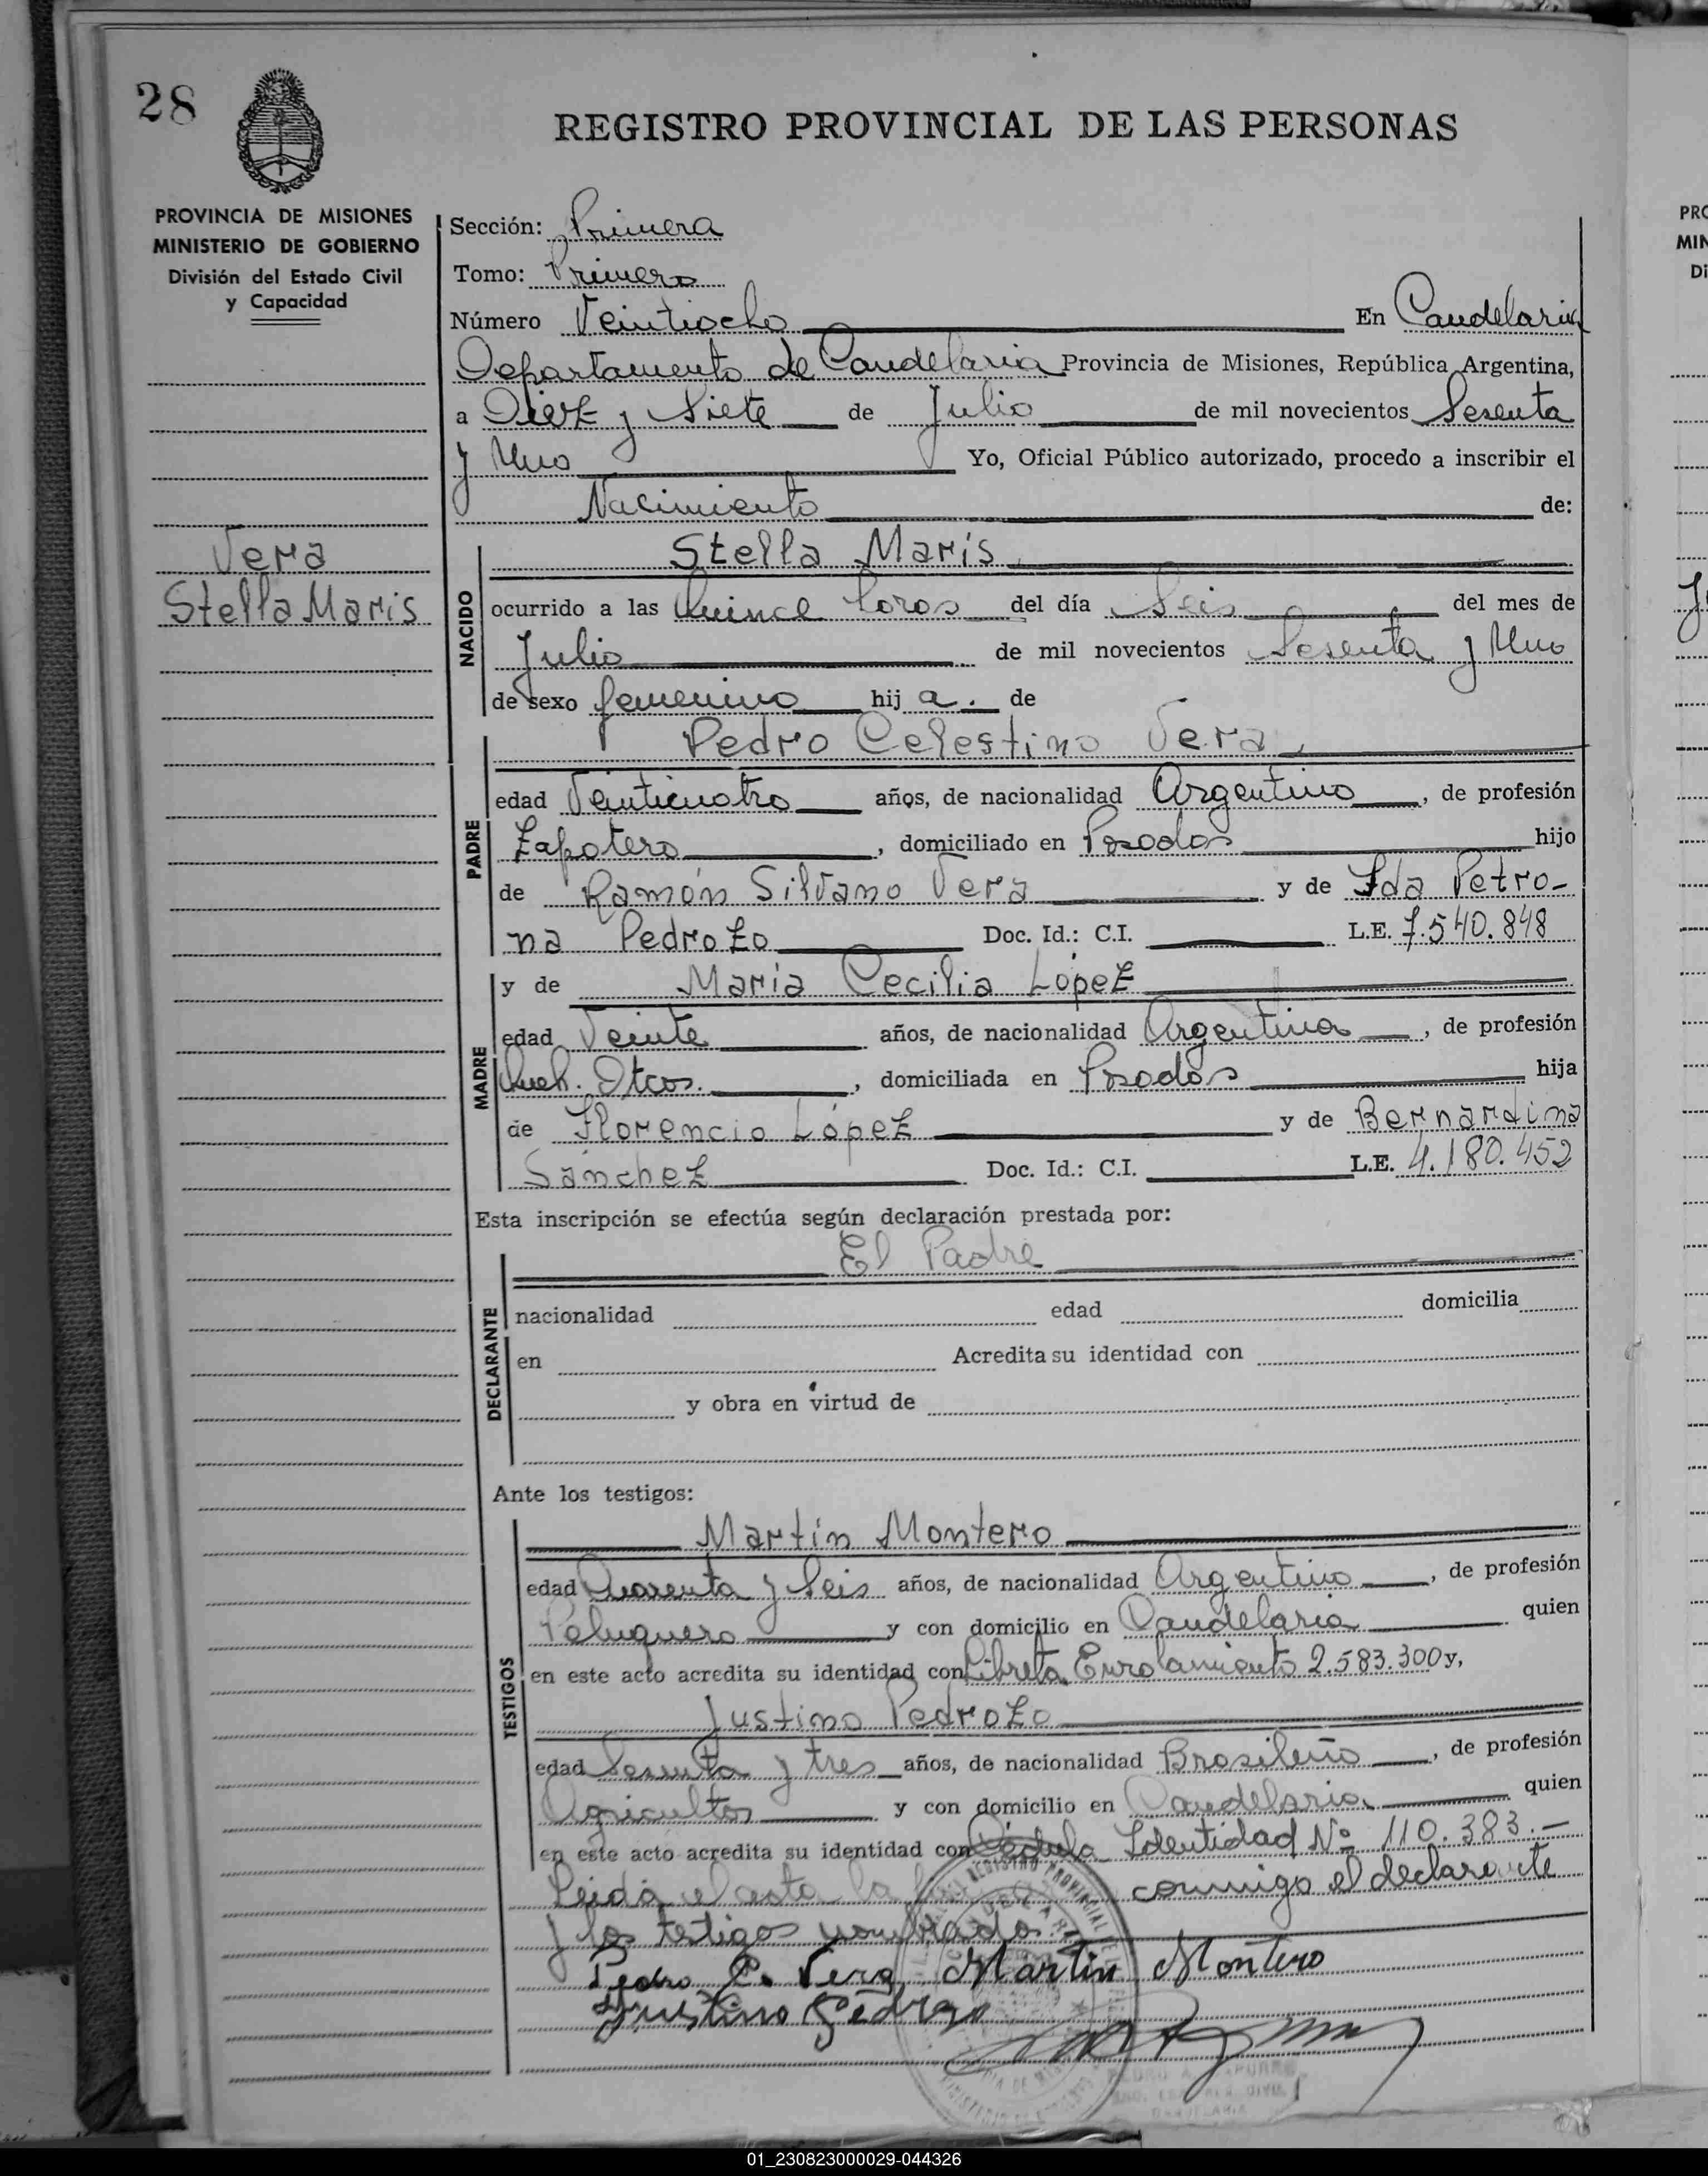 28
REGISTRO PROVINCIAL DE LAS PERSONAS
PROVINCIA DE MISIONES
MINISTERIO DE GOBIERNO
División del Estado Civil
y Capacidad
Vera
Stella Maris
Sección: Primera
Tomo: Primero
Número Veintiocho En Candelaria
Departamento de Candelaria Provincia de Misiones, República Argentina,
a Diez y Siete de Julio de mil novecientos Sesenta
y Uno Yo, Oficial Público autorizado, procedo a inscribir el
Nacimiento de:
NACIDO
Stella Maris
ocurrido a las Quince horas del día Seis del mes de
Julio de mil novecientos Sesenta y Uno
de sexo femenino hij a. de
PADRE
Pedro Celestino Vera
edad Veinticuatro años, de nacionalidad Argentino, de profesión
Zapatero, domiciliado en Posadas hijo
de Ramón Silvano Vera y de Ida Petro-
na Pedrozo Doc. Id.: C.I. L.E. 7.540.848
MADRE
y de María Cecilia López
edad Veinte años, de nacionalidad Argentina, de profesión
Queh. Dtcos., domiciliada en Posadas hija
de Florencio López y de Bernardina
Sánchez Doc. Id.: C.I. L.E. 4.180.452
Esta inscripción se efectúa según declaración prestada por:
DECLARANTE
El Padre
nacionalidad edad domicilia
en Acredita su identidad con
y obra en virtud de
Ante los testigos:
TESTIGOS
Martín Montero
edad Cuarenta y Seis años, de nacionalidad Argentino, de profesión
Peluquero y con domicilio en Candelaria quien
en este acto acredita su identidad con Libreta Enrolamiento 2.583.300 y,
Justino Pedrozo
edad Sesenta y tres años, de nacionalidad Brasileño, de profesión
Agricultor y con domicilio en Candelaria quien
en este acto acredita su identidad con Cédula Identidad Nº 110.383.-
Leida el acta la conmigo el declarante
y los testigos nombrados.
Pedro C. Vera Martin Montero
Justino Pedrozo
01_230823000029-044326